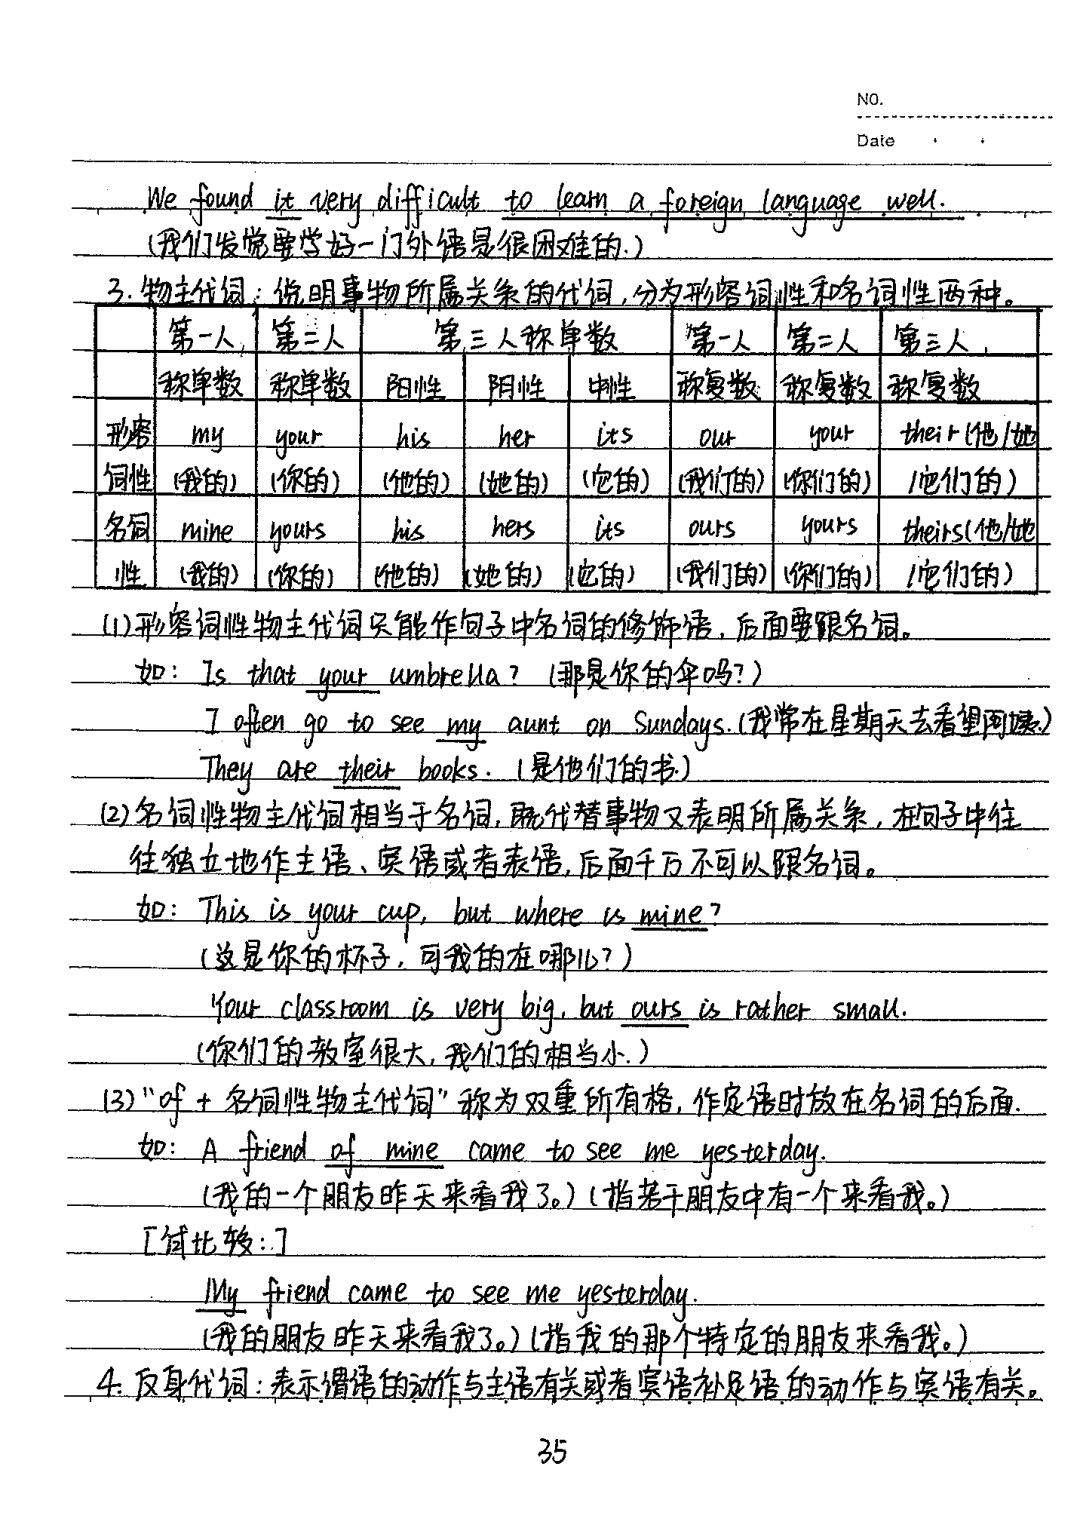 NO.
Date
We found it very difficult to learn a foreign language well.
(我们发觉要学好一门外语是很困难的.)
3. 物主代词: 说明事物所属关系的代词, 分为形容词性和名词性两种。
第一人 第二人 第三人称单数 第一人 第二人 第三人
称单数 称单数 阳性 阴性 中性 称复数 称复数 称复数
形容 my your his her its our your their(他/她
词性 (我的) (你的) (他的) (她的) (它的) (我们的) (你们的) /它们的)
名词 mine yours his hers its ours yours theirs(他/她
性 (我的) (你的) (他的) (她的) (它的) (我们的) (你们的) /它们的)
(1)形容词性物主代词只能作句子中名词的修饰语, 后面要跟名词。
如: Is that your umbrella? (那是你的伞吗?)
I often go to see my aunt on Sundays. (我常在星期天去看望阿姨.)
They are their books. (是他们的书.)
(2)名词性物主代词相当于名词, 既代替事物又表明所属关系, 在句子中往
往独立地作主语、宾语或者表语, 后面千万不可以跟名词。
如: This is your cup, but where is mine?
(这是你的杯子, 可我的在哪儿?)
Your classroom is very big, but ours is rather small.
(你们的教室很大, 我们的相当小.)
(3)"of + 名词性物主代词" 称为双重所有格, 作定语时放在名词的后面.
如: A friend of mine came to see me yesterday.
(我的一个朋友昨天来看我了。) (指若干朋友中有一个来看我。)
[试比较:]
My friend came to see me yesterday.
(我的朋友昨天来看我了。) (指我的那个特定的朋友来看我。)
4. 反身代词: 表示谓语的动作与主语有关或者宾语补足语的动作与宾语有关。
35